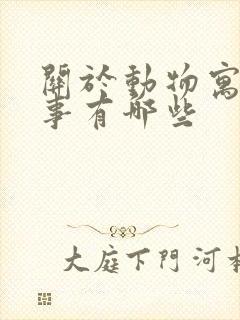 關於動物寓
事有那些
大庭下門河村